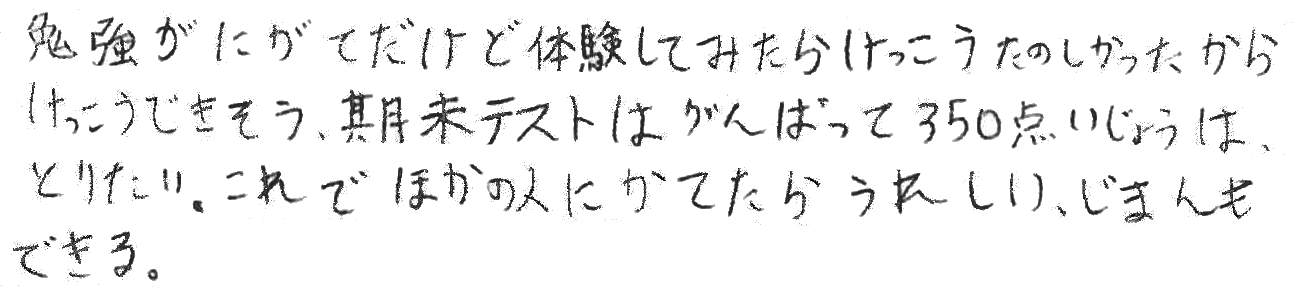 勉強がにがてだけど体験してみたらけっこうたのしかったから
けっこうできそう、期末テストはがんばって350点いじょうは、
とりたい。これでほかの人にかてたらうれしい、じまんも
できる。